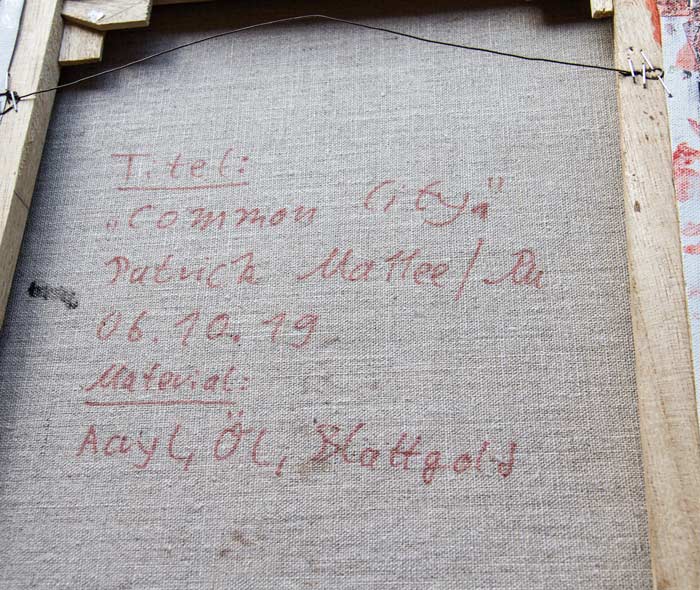 Titel:
„Common City"
Patrick
06.10.19
Material:
Acryl, Öl, Blattgold